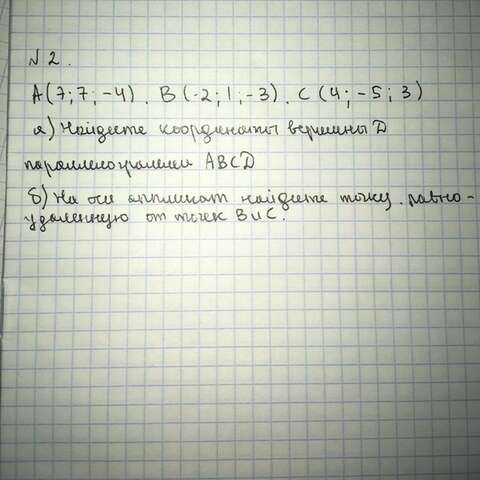 №2.
A(7; 7; -4). B(-2; 1; -3). C(4; -5; 3)
а) Найдите координаты вершины D
параллелограмма ABCD
б) На оси аппликат найдите точку, равно-
удаленную от точек B и C.